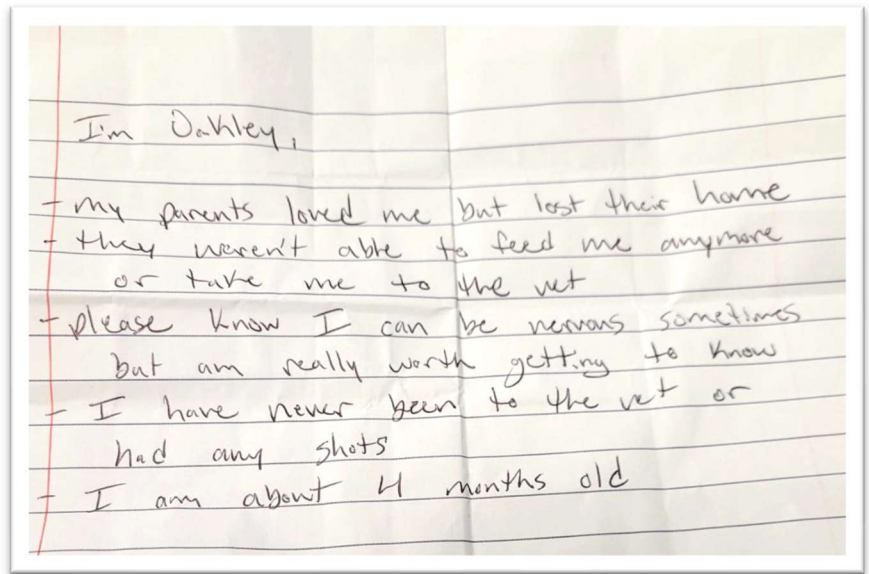 I'm Oakley,
- my parents loved me but lost their home
- they weren't able to feed me anymore
or take me to the vet
- please know I can be nervous sometimes
but am really worth getting to know
- I have never been to the vet or
had any shots
- I am about 4 months old